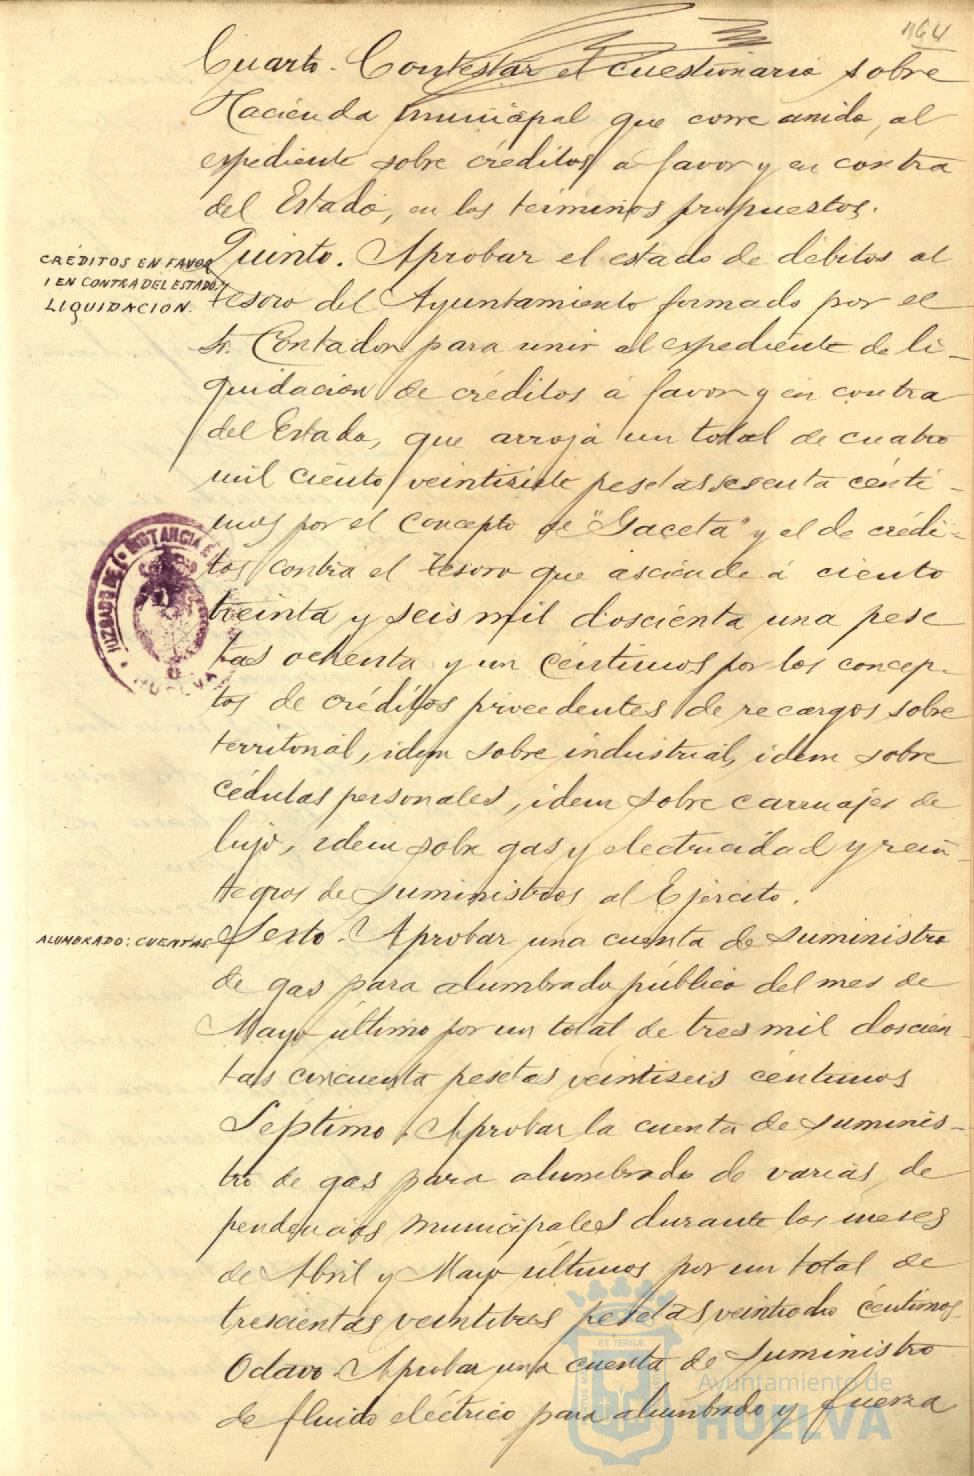 164
Cuarto. Contestar el cuestionario sobre
Hacienda municipal que corre unido, al
expediente sobre créditos á favor y en contra
del Estado, en los términos propuestos.
CRÉDITOS EN FAVOR
I EN CONTRA DEL ESTADO.
LIQUIDACION.
Quinto. Aprobar el estado de débitos al
Tesoro del Ayuntamiento formado por el
Sr. Contador para unir al expediente de li-
quidación de créditos á favor y en contra
del Estado, que arroja un total de cuatro
mil ciento veintisiete pesetas sesenta cénti-
mos por el concepto de "Gaceta" y el de crédi-
tos contra el Tesoro que asciende á ciento
treinta y seis mil doscienta una pese
tas ochenta y un céntimos por los concep-
tos de créditos procedentes de recargos sobre
territorial, idem sobre industrial, idem sobre
cédulas personales, idem sobre carruajes de
lujo, idem sobre gas y electricidad y rein-
tegros de suministros al Ejército.
JUZGADO DE 1ª INSTANCIA
HUELVA
ALUMBRADO: CUENTAS
Sexto. Aprobar una cuenta de suministro
de gas para alumbrado público del mes de
Mayo último por un total de tres mil doscien-
tas cincuenta pesetas veintiseis céntimos
Séptimo. Aprobar la cuenta de suminis-
tro de gas para alumbrado de varias de
pendencias municipales durante los meses
de Abril y Mayo últimos por un total de
trescientas veintitres pesetas veintiocho céntimos
Octavo. Aprobar una cuenta de suministro
de fluido eléctrico para alumbrado y fuerza
Ayuntamiento de
HUELVA